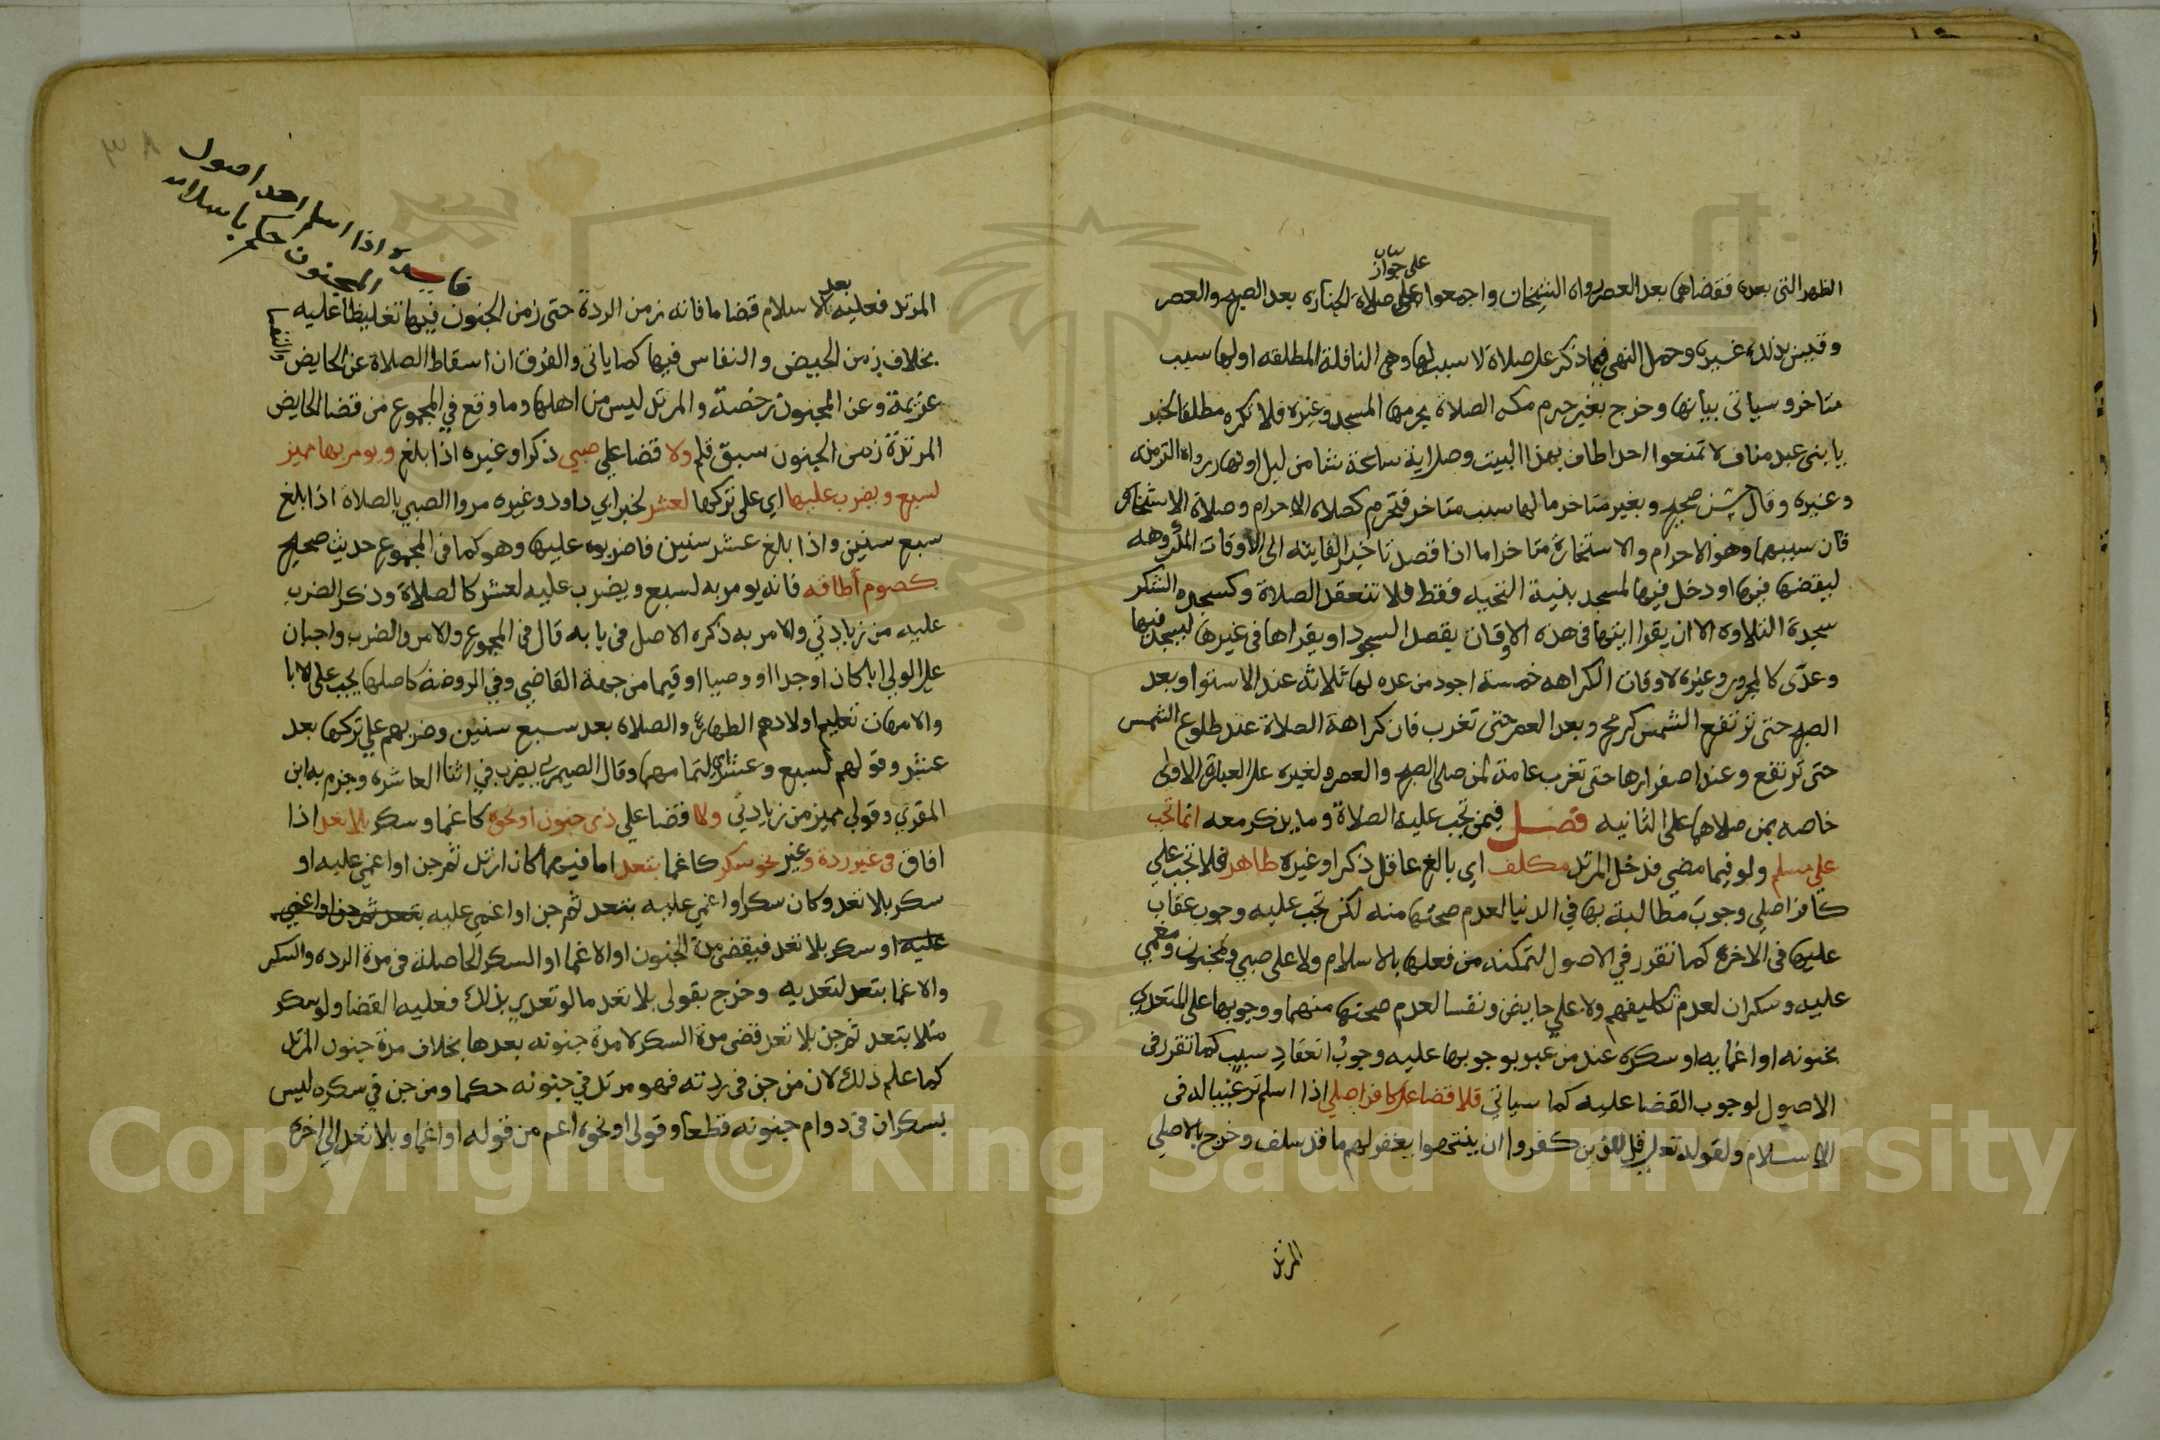 على جواز
الظهر التى بعده فقضاهما بعد العصر رواه الشيخان واجمعوا على صلاة الجنازة بعد الصبح والعصر
وقيس بذلك غيره وحمل النهى فيما ذكر على صلاة لا سبب لها وهى النافلة المطلقه او لها سبب
متاخر وسياتى بيانها وخرج بغير حرم مكه الصلاة بحرمها المسجد وغيره فلا تكره مطلقا لخبر
يا بنى عبد مناف لا تمنعوا احدا طاف بهذا البيت وصلى اية ساعة شا من ليل او نهار رواه الترمذى
وغيره وقال حسن صحيح وبغير متاخر ما لها سبب متاخر فتحرم كصلاه الاحرام وصلاة الاستخاره
فان سببهما وهو الاحرام والاستخارة متاخر اما اذا قصد تاخير الفايته الى الاوقات المكروهه
ليقضيها فيها او دخل فيها المسجد بنية التحيه فقط فلا تنعقد الصلاة وكسجدة الشكر
سجدة التلاوه الا ان يقرا ايتها فى هذه الاوقات بقصد السجود او يقراها فى غيرها ليسجد فيها
وعدّى كالمحرر وغيره لاوقات الكراهه خمسة اجود من عده لها ثلاثه عند الاستوا وبعد
الصبح حتى ترتفع الشمس كرمح وبعد العصر حتى تغرب فان كراهة الصلاة عند طلوع الشمس
حتى ترتفع وعند اصفرارها حتى تغرب عامة لمن صلى الصبح والعصر ولغيره على العبارة الاولى
خاصه بمن صلاهما على الثانيه فصل فيمن تجب عليه الصلاة وما يذكر معه انما تجب
على مسلم ولو فيما مضى فدخل المرتد مكلف اى بالغ عاقل ذكرا وغيره طاهر فلا تجب على
كافر اصلى وجوب مطالبة بها في الدنيا لعدم صحتها منه لكن تجب عليه وجوب عقاب
عليها فى الاخرة كما تقرر في الاصول لتمكنه من فعلها بالاسلام ولا على صبي ومجنون ومغمي
عليه وسكران لعدم تكليفهم ولا على حايض ونفسا لعدم صحتها منهما ووجوبها على المتعدي
بجنونه او اغمايه او سكره عند من عبر بوجوبها عليه وجوب انعقاد سبب كما تقرر فى
الاصول لوجوب القضا عليه كما سياتي فلا قضا على كافر اصلي اذا اسلم ترغيبا له فى
الاسلام ولقوله تعالى قل للذين كفروا ان ينتهوا يغفر لهم ما قد سلف وخرج بالاصلي
المرتد
فايدة اذا اسلم احد اصول
المجنون حكم باسلامه
المرتد فعليه بعد الاسلام قضا ما فاته زمن الردة حتى زمن الجنون فيها تغليظا عليه
بخلاف زمن الحيض والنفاس فيها كما ياتى والفرق ان اسقاط الصلاة عن الحايض والنفسا
عزيمة وعن المجنون رخصة والمرتد ليس من اهلها وما وقع في المجموع من قضا الحايض
المرتدة زمن الجنون سبق قلم ولا قضا علي صبي ذكرا وغيره اذا بلغ ويومر بها مميز
لسبع ويضرب عليها اي على تركها لعشر لخبر ابي داود وغيره مروا الصبي بالصلاة اذا بلغ
سبع سنين واذا بلغ عشر سنين فاضربوه عليها وهو كما فى المجموع حديث صحيح
كصوم أطاقه فانه يومر به لسبع ويضرب عليه لعشر كالصلاة وذكر الضرب
عليه من زيادتي والامر به ذكره الاصل فى بابه قال فى المجموع والامر والضرب واجبان
على الولي ابا كان او جدا او وصيا او قيما من جهة القاضي وفي الروضة كاصلها يجب على الابا
والامهات تعليم اولادهم الطهارة والصلاه بعد سبع سنين وضربهم علي تركها بعد
عشر وقولهم لسبع وعشر اي لتمامهما وقال الصيمري يضرب في اثنا العاشره وجزم به ابن
المقري وقولي مميز من زيادتي ولا قضا علي ذى جنون او نحوه كاغما وسكر بلا تعد اذا
افاق فى غير ردة وغير نحو سكر كاغما بتعد اما فيهما كان ارتد ثم جن او اغمي عليه او
سكر بلا تعد وكان سكر او اغمي عليه بتعد ثم جن او اغمي عليه بتعد ثم جن او اغمي
عليه او سكر بلا تعد فيقضي مدة الجنون او الاغما او السكر الحاصلة فى مدة الرده والسكر
والاغما بتعد لتعديه وخرج بقولى بلا تعد ما لو تعدي بذلك فعليه القضا ولو سكر
مثلا بتعد ثم جن بلا تعد قضى مدة السكر لا مدة جنونه بعدها بخلاف مدة جنون المرتد
كما علم ذلك لان من جن فى ردته فهو مرتد في جنونه حكما ومن جن في سكره ليس
بسكران فى دوام جنونه قطعا وقولى او نحوه اعم من قوله او اغما وبلا تعد الي اخره
Copyright © King Saud University